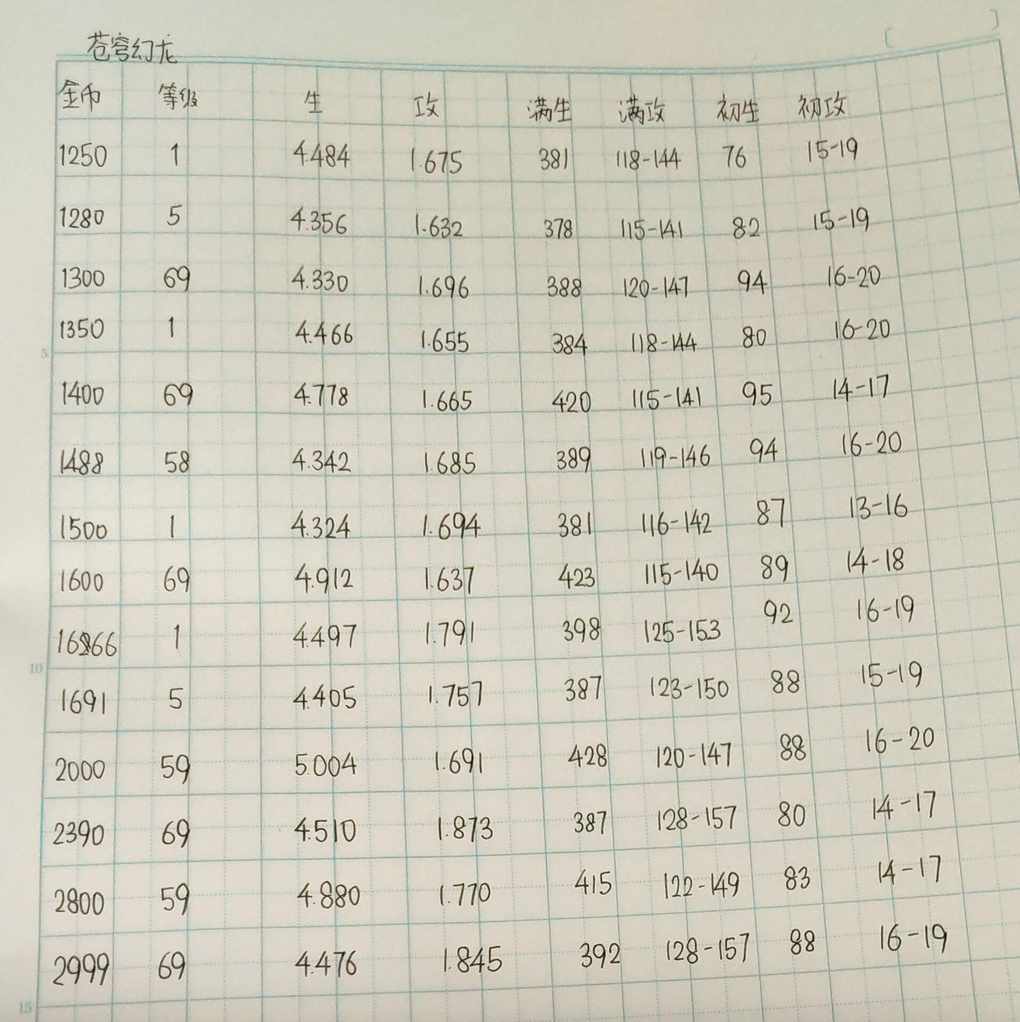 苍穹幻龙
金币 等级 生 攻 满生 满攻 初生 初攻
1250 1 4.484 1.675 381 118-144 76 15-19
1280 5 4.356 1.632 378 115-141 82 15-19
1300 69 4.330 1.696 388 120-147 94 16-20
1350 1 4.466 1.655 384 118-144 80 16-20
1400 69 4.778 1.665 420 115-141 95 14-17
1488 58 4.342 1.685 389 119-146 94 16-20
1500 1 4.324 1.694 381 116-142 87 13-16
1600 69 4.912 1.637 423 115-140 89 14-18
1 4.497 1.791 398 125-153 92 16-19
1691 5 4.405 1.757 387 123-150 88 15-19
2000 59 5.004 1.691 428 120-147 88 16-20
2390 69 4.510 1.873 387 128-157 80 14-17
2800 59 4.880 1.770 415 122-149 83 14-17
2999 69 4.476 1.845 392 128-157 88 16-19
5
10
15